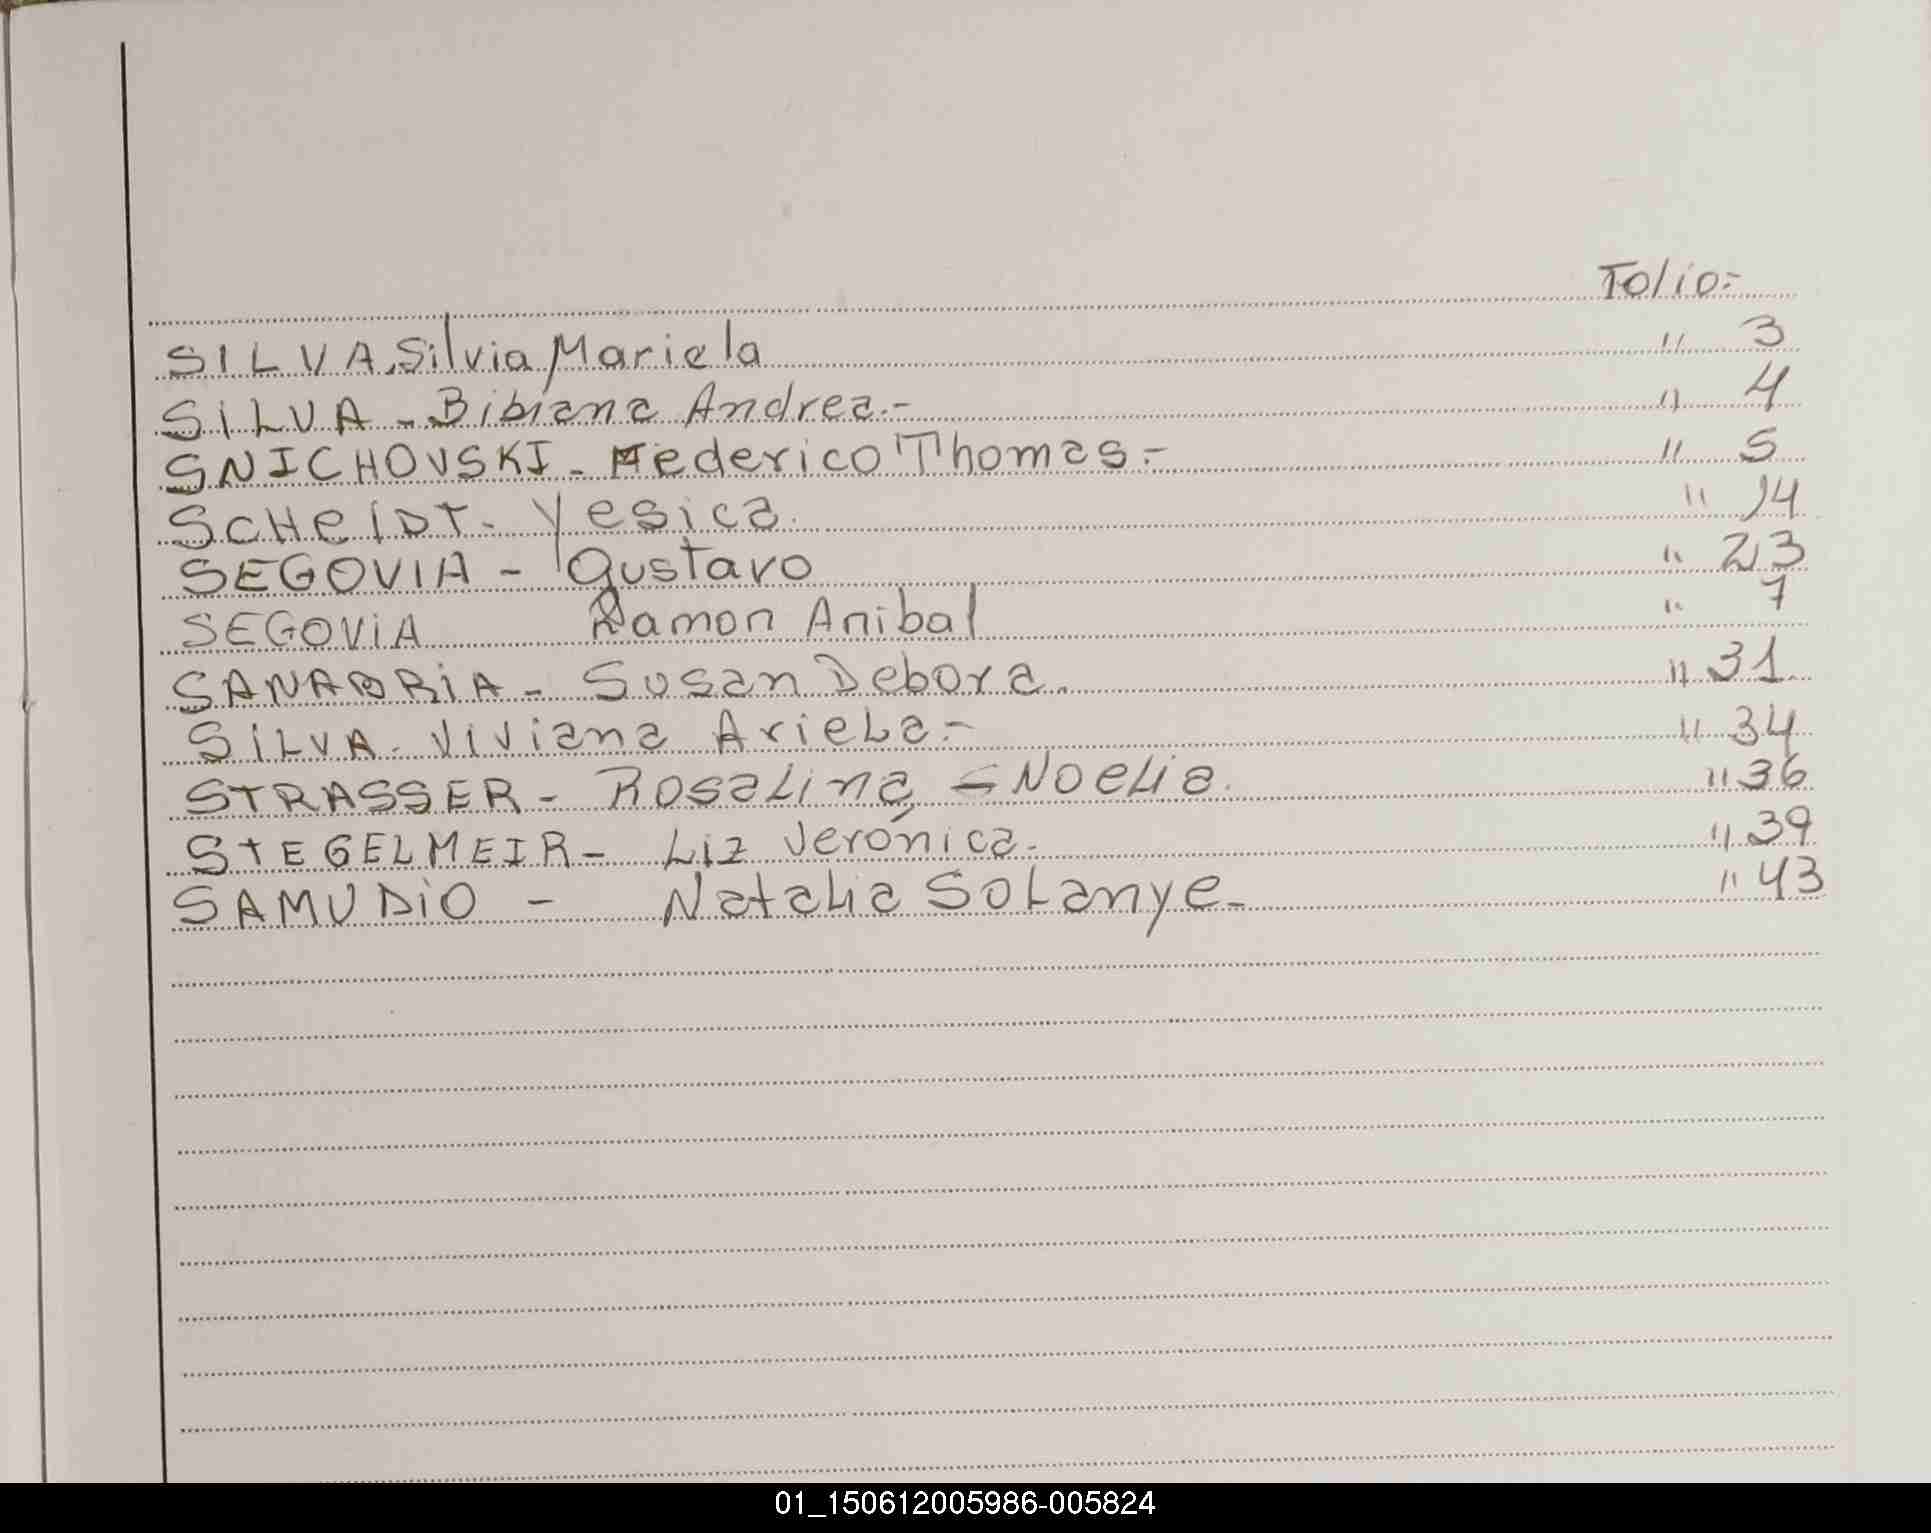 Folio:-
SILVA, Silvia Mariela " 3
SILVA - Bibiana Andrea.- " 4
SNICHOVSKI - Federico Thomas.- " 5
SCHEIDT - Yesica. " 14
SEGOVIA - Gustavo " 23
SEGOVIA Ramon Anibal " 7
SANABRIA - Susan Debora. " 31
SILVA - Viviana Ariela.- " 34
STRASSER - Rosalina - Noelia. " 36
STEGELMEIR - Liz Verónica. " 39
SAMUDIO - Natalia Solanye - " 43
01_150612005986-005824